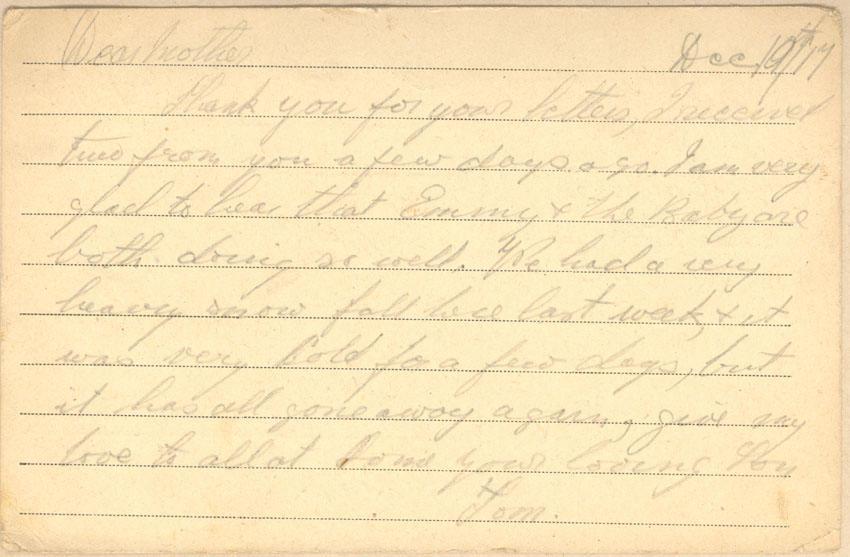 Dear Mother Dec 19th 17
Thank you for your letters, I received
two from you a few days ago. I am very
glad to hear that Emmy & the Baby are
both doing so well. We had a very
heavy snow fall here last week, & it
was very Cold for a few days, but
it has all gone away again, give my
love to all at home your loving Son
Tom.